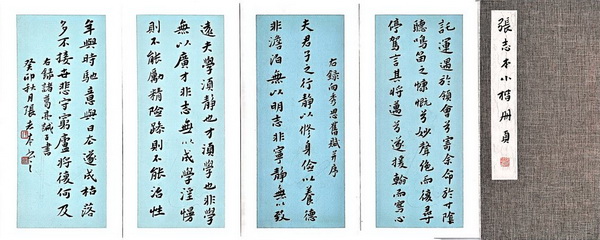 張志本小楷冊頁
託運遇於領會兮寄余命於寸陰
聽鳴笛之慷慨兮妙聲絕而復尋
停駕言其將邁兮遂援翰而寫心
右錄向秀思舊賦并序
夫君子之行靜以修身儉以養德
非澹泊無以明志非寧靜無以致
遠夫學須靜也才須學也非學
無以廣才非志無以成學淫慢
則不能勵精險躁則不能治性
年與時馳意與日去遂成枯落
多不接世悲守窮廬將復何及
右錄諸葛亮誡子書
癸卯秋月張志本